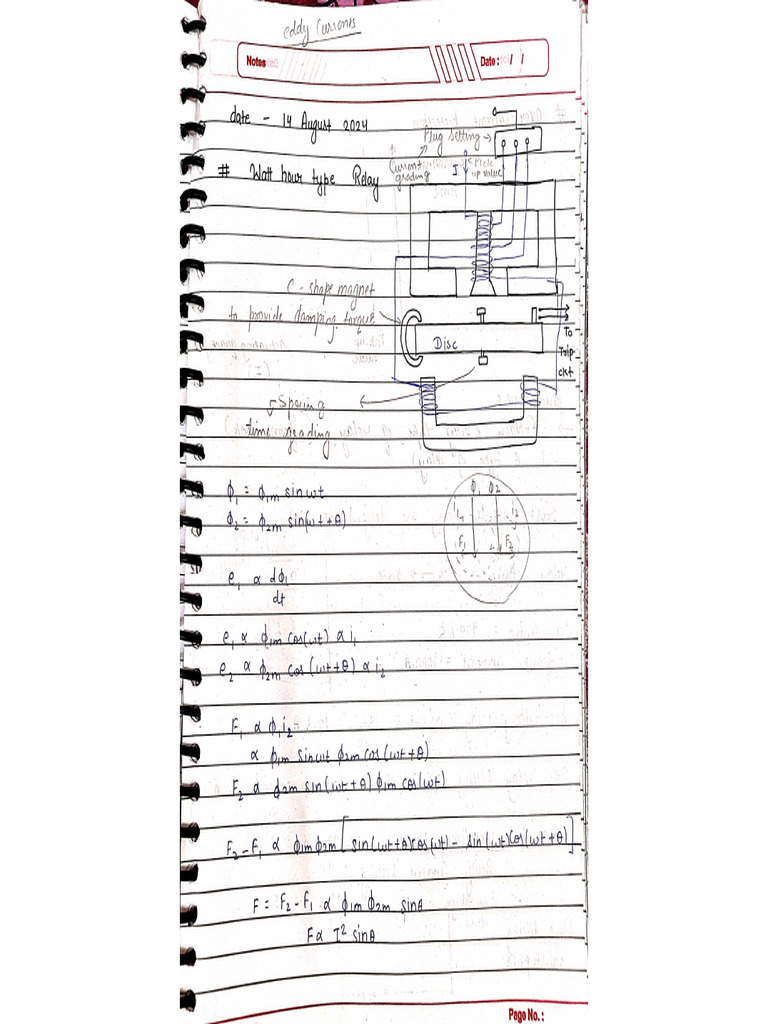 eddy Currents
Notes
Date : / /
date - 14 August 2024
Plug setting →
# Watt hour type Relay
Current grading
I
Pick up value
C - shape magnet
to provide damping torque
Disc
To
Trip
ckt
Spring
time grading
ϕ₁ = ϕ₁m sin ωt
ϕ₂ = ϕ₂m sin(ωt + θ)
ϕ₁ ϕ₂
i₁ i₂
F₁ F₂
e₁ ∝ dϕ₁
dt
e₁ ∝ ϕ₁m cos(ωt) ∝ i₁
e₂ ∝ ϕ₂m cos (ωt + θ) ∝ i₂
F₁ ∝ ϕ₁ i₂
∝ ϕ₁m sin ωt ϕ₂m cos (ωt + θ)
F₂ ∝ ϕ₂m sin(ωt + θ) ϕ₁m cos(ωt)
F₂ - F₁ ∝ ϕ₁m ϕ₂m [sin(ωt+θ)cos(ωt) - sin(ωt)cos(ωt + θ)]
F = F₂ - F₁ ∝ ϕ₁m ϕ₂m sin θ
F ∝ I² sin θ
Page No. :